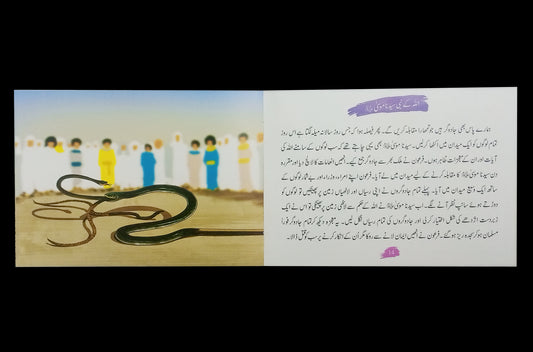 اللہ کے نبی سیدنا موسیٰ علیہ السلام
ہمارے پاس بھی جادوگر ہیں جو تمھارا مقابلہ کریں گے۔ پھر فیصلہ ہوا کہ جس روز سالانہ میلہ لگتا ہے اس روز
تمام لوگوں کو ایک میدان میں اکٹھا کر لیں۔ سیدنا موسیٰ علیہ السلام بھی یہی چاہتے تھے کہ سب لوگوں کے سامنے اللہ کی
آیات اور ان کے معجزات ظاہر ہوں۔ فرعون نے ملک بھر سے جادوگر جمع کیے۔ انھیں انعامات کا لالچ دیا اور مقررہ
دن سیدنا موسیٰ علیہ السلام کا مقابلہ کرنے کے لیے میدان میں لے آیا۔ فرعون اپنے امراء، وزراء اور بے شمار لوگوں کے
ساتھ ایک وسیع میدان میں آیا۔ پہلے تمام جادوگروں نے اپنی رسیاں اور لاٹھیاں زمین پر پھینکیں تو لوگوں کو
دوڑتے ہوئے سانپ نظر آنے لگے۔ اب سیدنا موسیٰ علیہ السلام نے اللہ کے حکم سے لاٹھی زمین پر پھینکی تو اس نے ایک
زبردست اژدھے کی شکل اختیار کرلی اور جادوگروں کی تمام رسیاں نگل لیں۔ یہ معجزہ دیکھ کر تمام جادوگر فوراً
مسلمان ہوکر سجدہ ریز ہوگئے۔ فرعون نے انھیں ایمان لانے سے روکا مگر اُن کے انکار کرنے پر سب کو قتل کر ڈالا۔
14